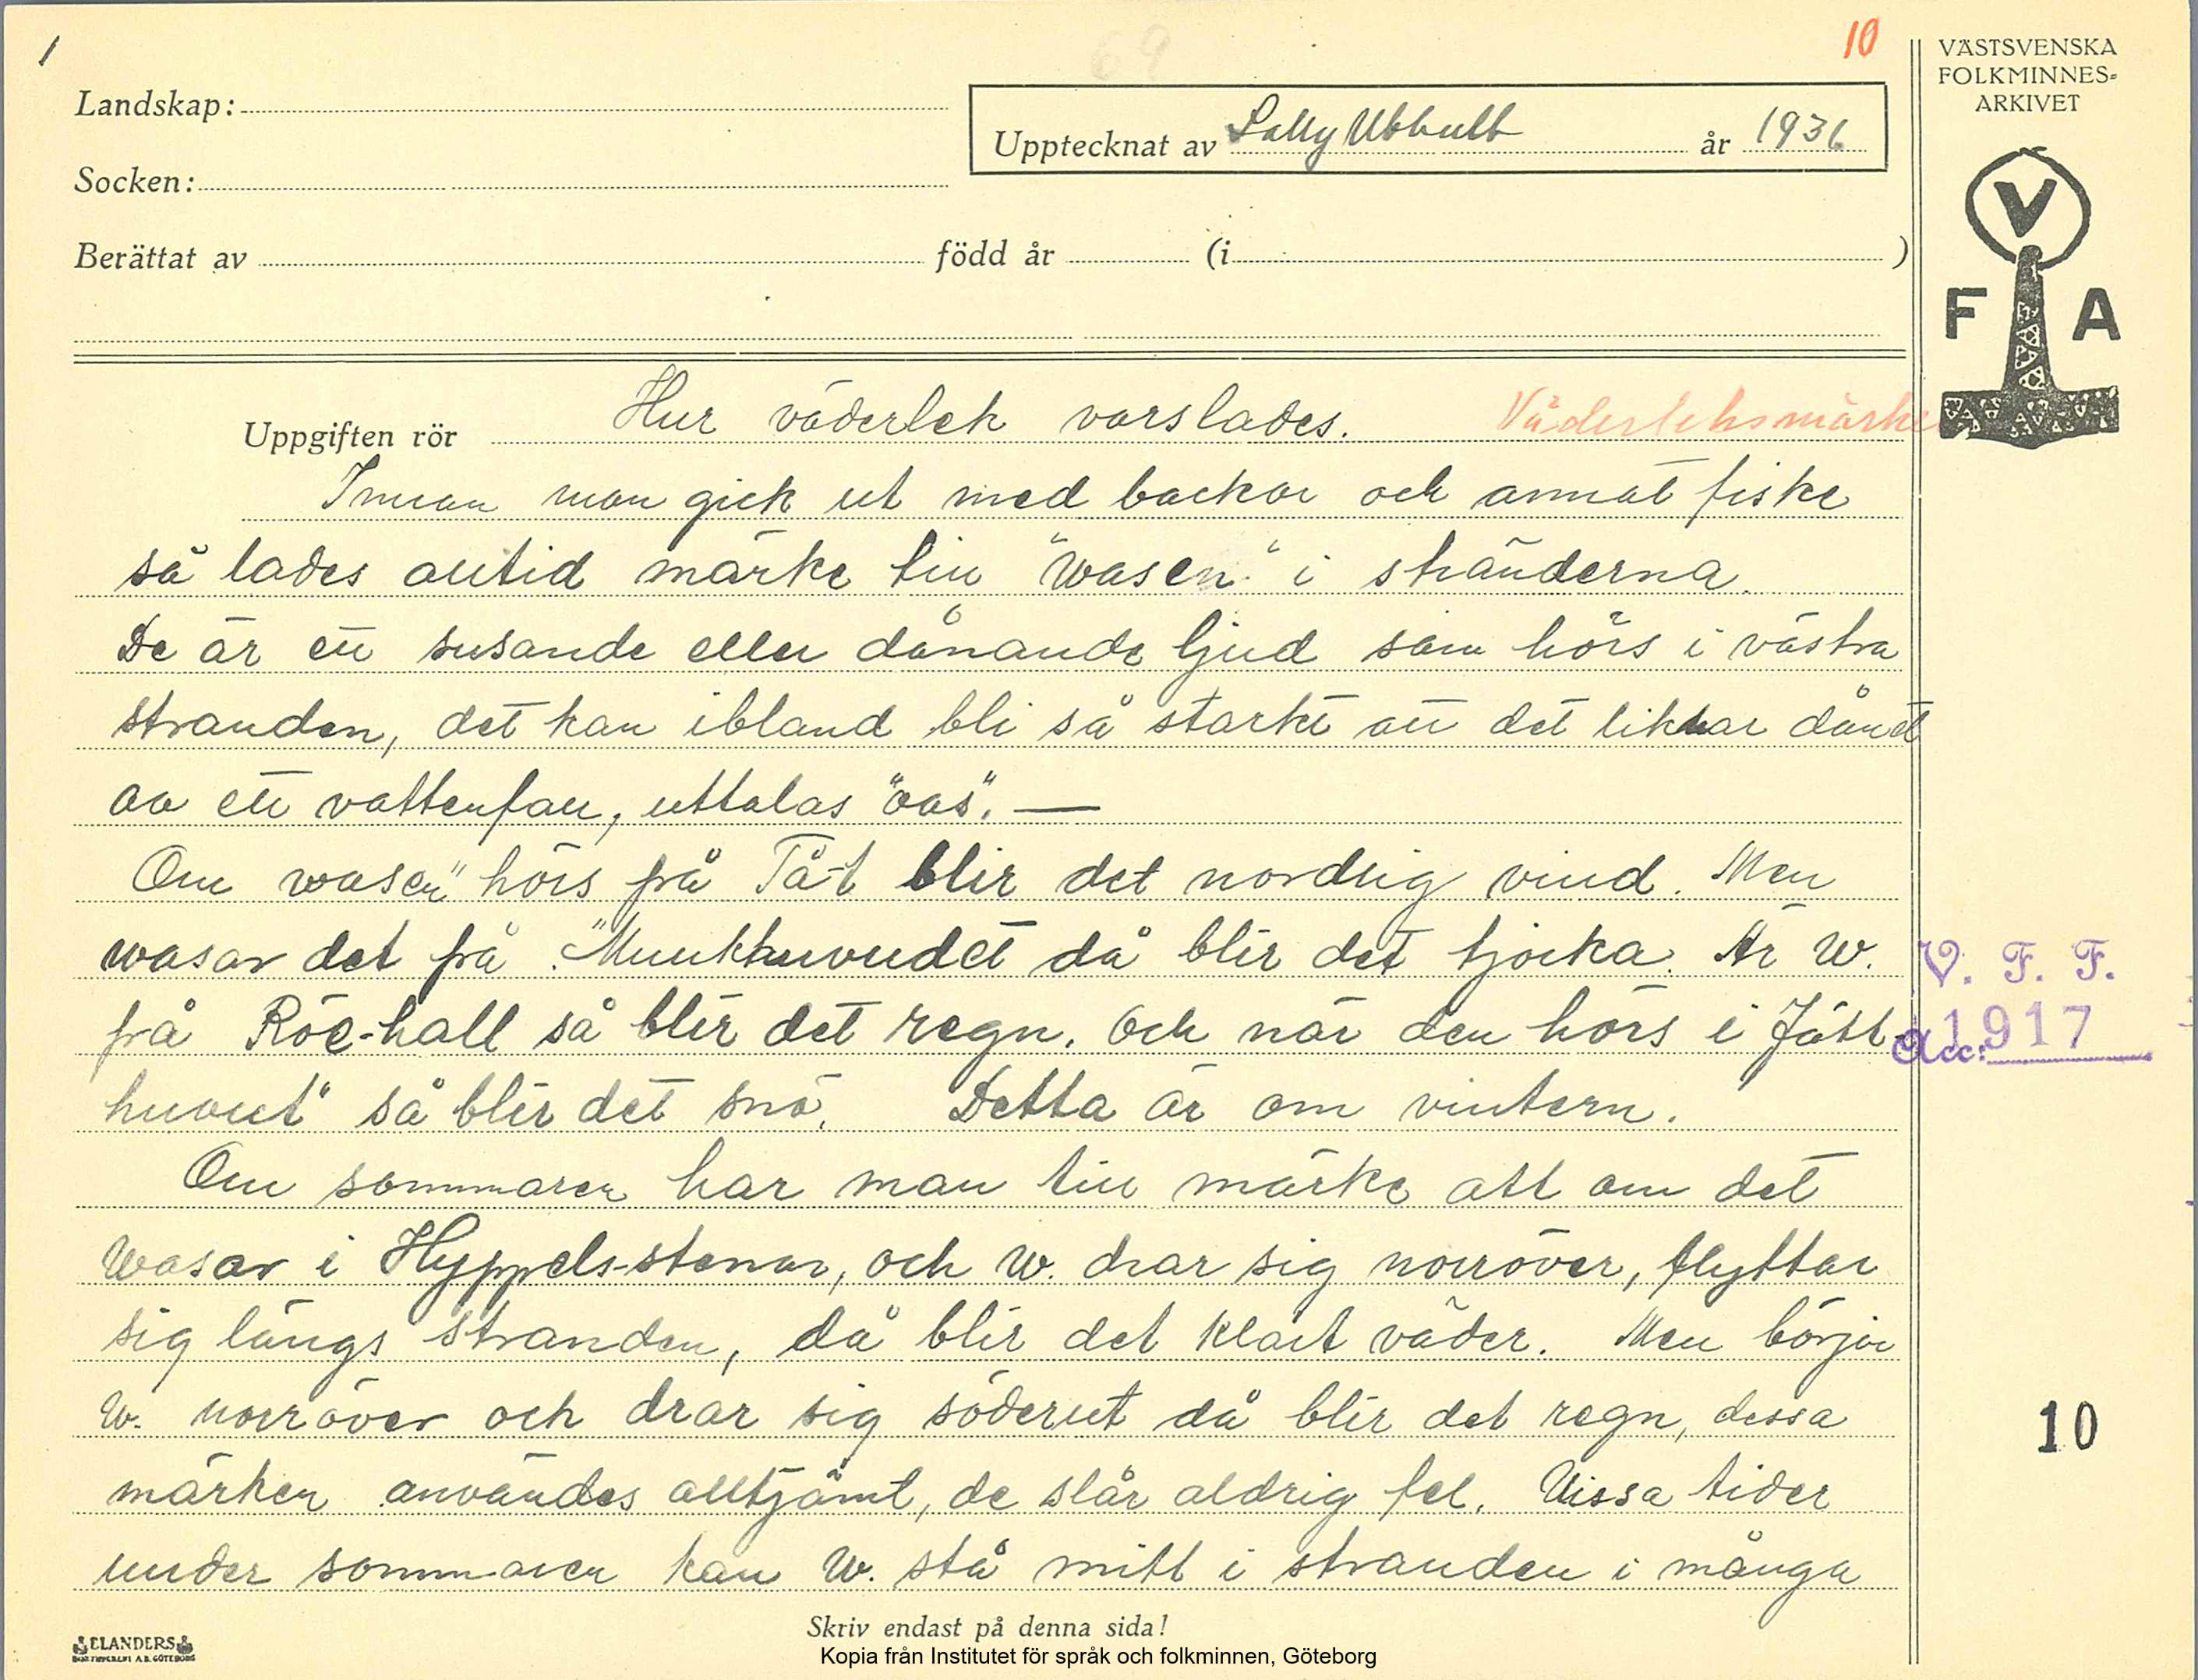 1
10
69
VÄSTSVENSKA
FOLKMINNES=
ARKIVET
Landskap:
Upptecknat av Sally Ubbhult år 1936
Socken:
Berättat av född år (i )
V
F A
Uppgiften rör Hur väderlek varslades. Väderleksmärke
Innan man gick ut med backor och annat fiske
så lades alltid märke till "wasen" i stränderna.
De är ett susande eller dånande ljud som hörs i västra
stranden, det kan ibland bli så starkt att det liknar dånet
av ett vattenfall, uttalas "oas". —
Om wasen" hörs frå Tå-t blir det nordlig vind. Men
wasar det frå "Munkhuvudet då blir det tjocka. Är W.
frå Röe-hall så blir det regn. Och när den hörs i Jätt-
huvuet" så blir det snö. Detta är om vintern.
Om sommaren har man till märke att om det
wasar i Hyppels-stenar, och W. drar sig norröver, flyttar
sig längs stranden, då blir det klart väder. Men börjar
W. norröver och drar sig söderut då blir det regn, dessa
märken användes alltjämt, de slår aldrig fel. Vissa tider
under sommaren kan W. stå mitt i stranden i många
V. F. F.
Acc: 1917
10
Skriv endast på denna sida!
ELANDERS
BOKTRYCKERI A.B. GÖTEBORG
Kopia från Institutet för språk och folkminnen, Göteborg